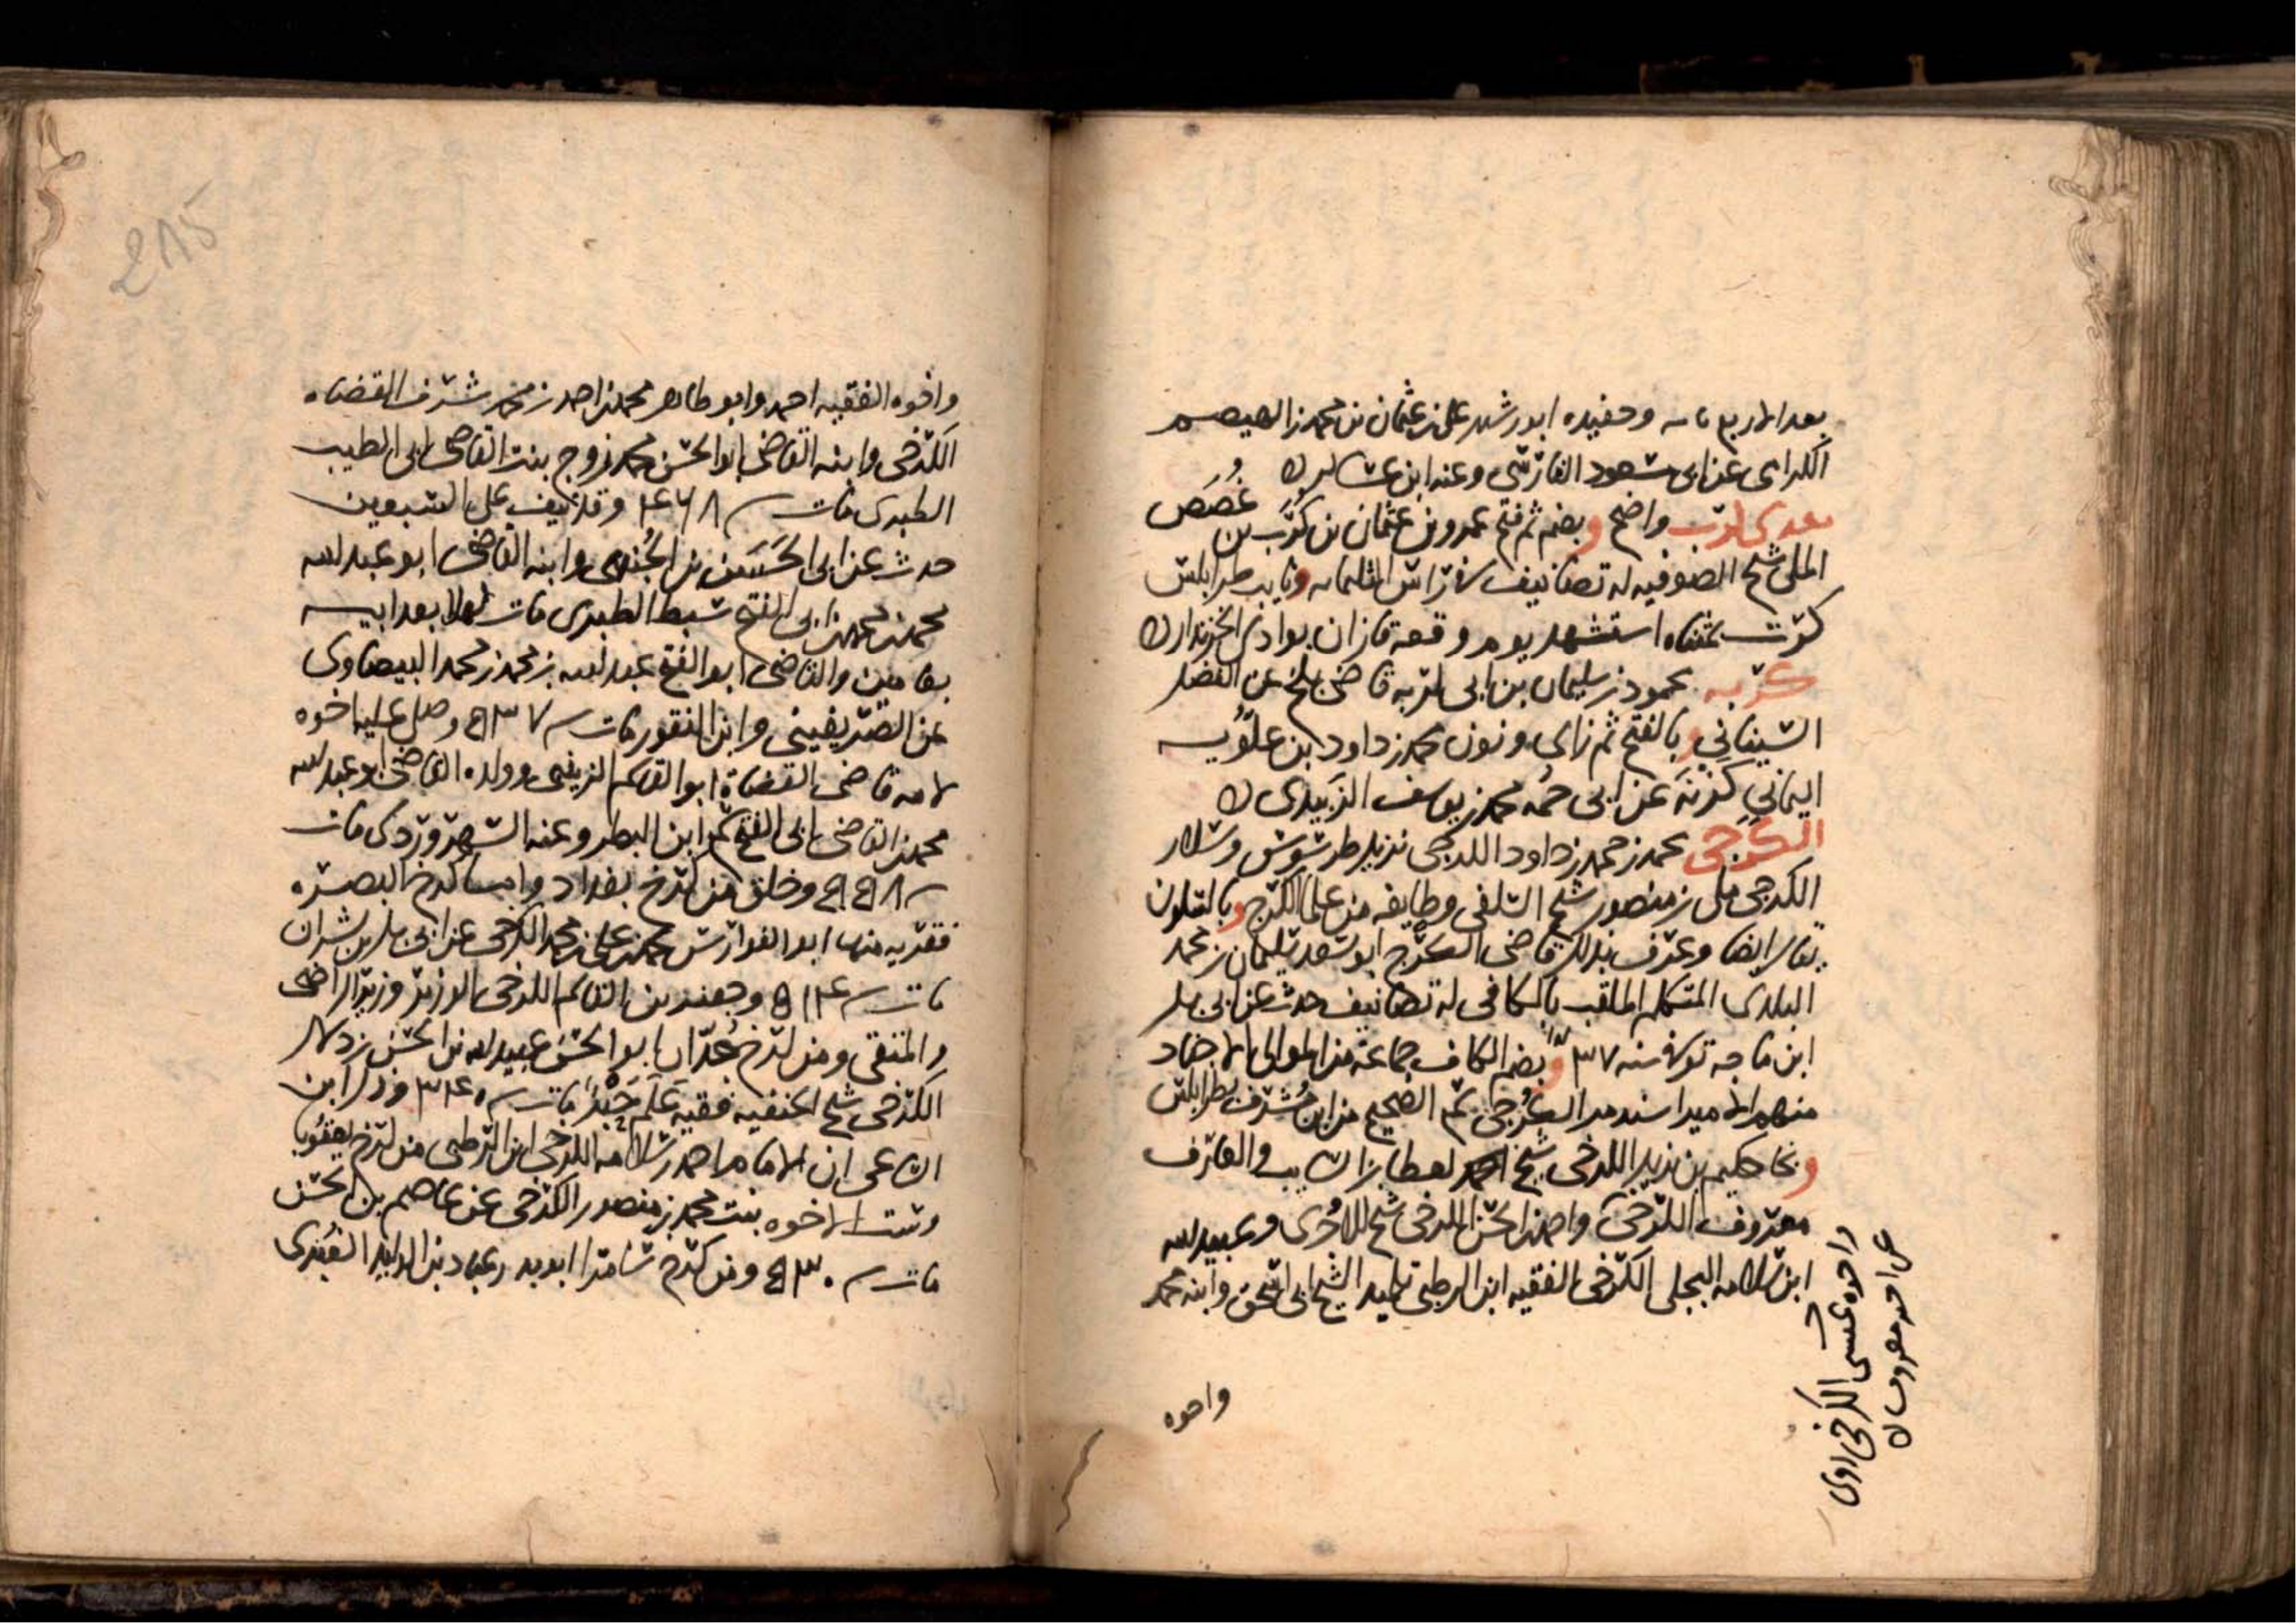 بعد الاربع مايه وحفيده ابو رشد علي بن عثمان بن محمد بن الهيصم
الكرامي عن ابي مسعود الفارسي وعنه ابن عساكر
معدي كرب واضح وبضم ثم فتح عمرو بن عثمان بن كُرَب بن غُصَص
المكي شيخ الصوفيه له تصانيف في راس الثلثمايه ونايب طرابلس
كرت بمثناه استشهد يوم وقعة قازان بوادي الخزندار
كربه محمود بن سليمان بن ابي كربه قاضي بلخ عن الفضل
الشيناني وبالفتح ثم زاي ونون محمد بن داود بن علويه
اليماني كزنة عن ابي حمه محمد بن يوسف الزبيدي
الكرجي محمد بن حمد بن داود الكرجي نزيل طرسوس وسلار
الكرجي مكي بن منصور شيخ السلفي وطايفه من علما الكرج وبالسكون
يقال ايضا وعرف بذلك قاضي الكرج ابو سعد سليمان بن محمد
البلدي المتكلم الملقب بالكافي له تصانيف حدث عن ابي بكر
ابن ماجة توفي سنه ٥٣٧ وبضم الكاف جماعة من الموالي الاجناد
منهم الامير اسندمر الكرجي سمع الصحيح من ابن مشرف بطرابلس
وبخا حكيم بن يزيد الكرخي شيخ لعطا بن السايب والعارف
معروف الكرخي واحمد بن الحسن الكرخي شيخ للدوري وعبيد الله
ابن سلامه البجلي الكرخي الفقيه ابن الرطبي تلميذ الشيخ ابي اسحق وابنه محمد
واخوه عيسى الكرخي روى
عن اخيه معروف
واخوه
واخوه الفقيه احمد وابو طاهر محمد بن احمد بن محمد شرف القضاه
الكرخي وابنه القاضي ابو الحسن محمد زوج بنت القاضي ابي الطيب
الطبري مات سنه ٤٦٨ وقد نيف على السبعين
حدث عن ابي الحسن بن الجندي وابنه القاضي ابو عبد الله
محمد بن محمد بن ابي الفتح سبط الطبري مات كهلا بعد ابيه
بعامين والقاضي ابو الفتح عبد الله بن محمد بن محمد البيضاوي
عن الصريفيني وابن النقور مات سنه ٥٣٧ وصلى عليه اخوه
لامه قاضي القضاة ابو القاسم الزينبي وولده القاضي ابو عبد الله
محمد بن القاضي ابي الفتح سمع ابن البطر وعنه السهروردي مات
سنه ٥٥٨ وخلق من كرخ بغداد واما كرخ البصره
فقريه منها ابو الفوارس محمد بن علي بن محمد الكرخي عن ابي بكر بن بشران
مات سنه ٥١٤ وجعفر بن القاسم الكرخي الوزير وزير الراضي
والمتقي ومن كرخ جُدّان ابو الحسن عبيد الله بن الحسن بن دلال
الكرخي شيخ الحنفيه فقيه عَلَم حَبْر مات سنه ٣٤٠ وذكر ابن
الساعي ان الامام احمد بن سلامه الكرخي ابن الرطبي من كرخ يعقوبا
وست الاخوه بنت محمد بن منصور الكرخي عن عاصم بن الحسن
مات سنه ٥٣٠ ومن كرخ سامرا ابو بدر عباد بن الوليد الغبري
215